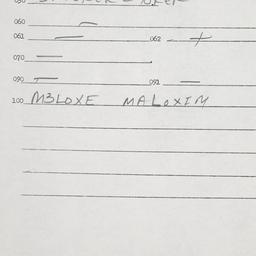 060
061 062
070
090 091
100 M3LOXE MALOXIM